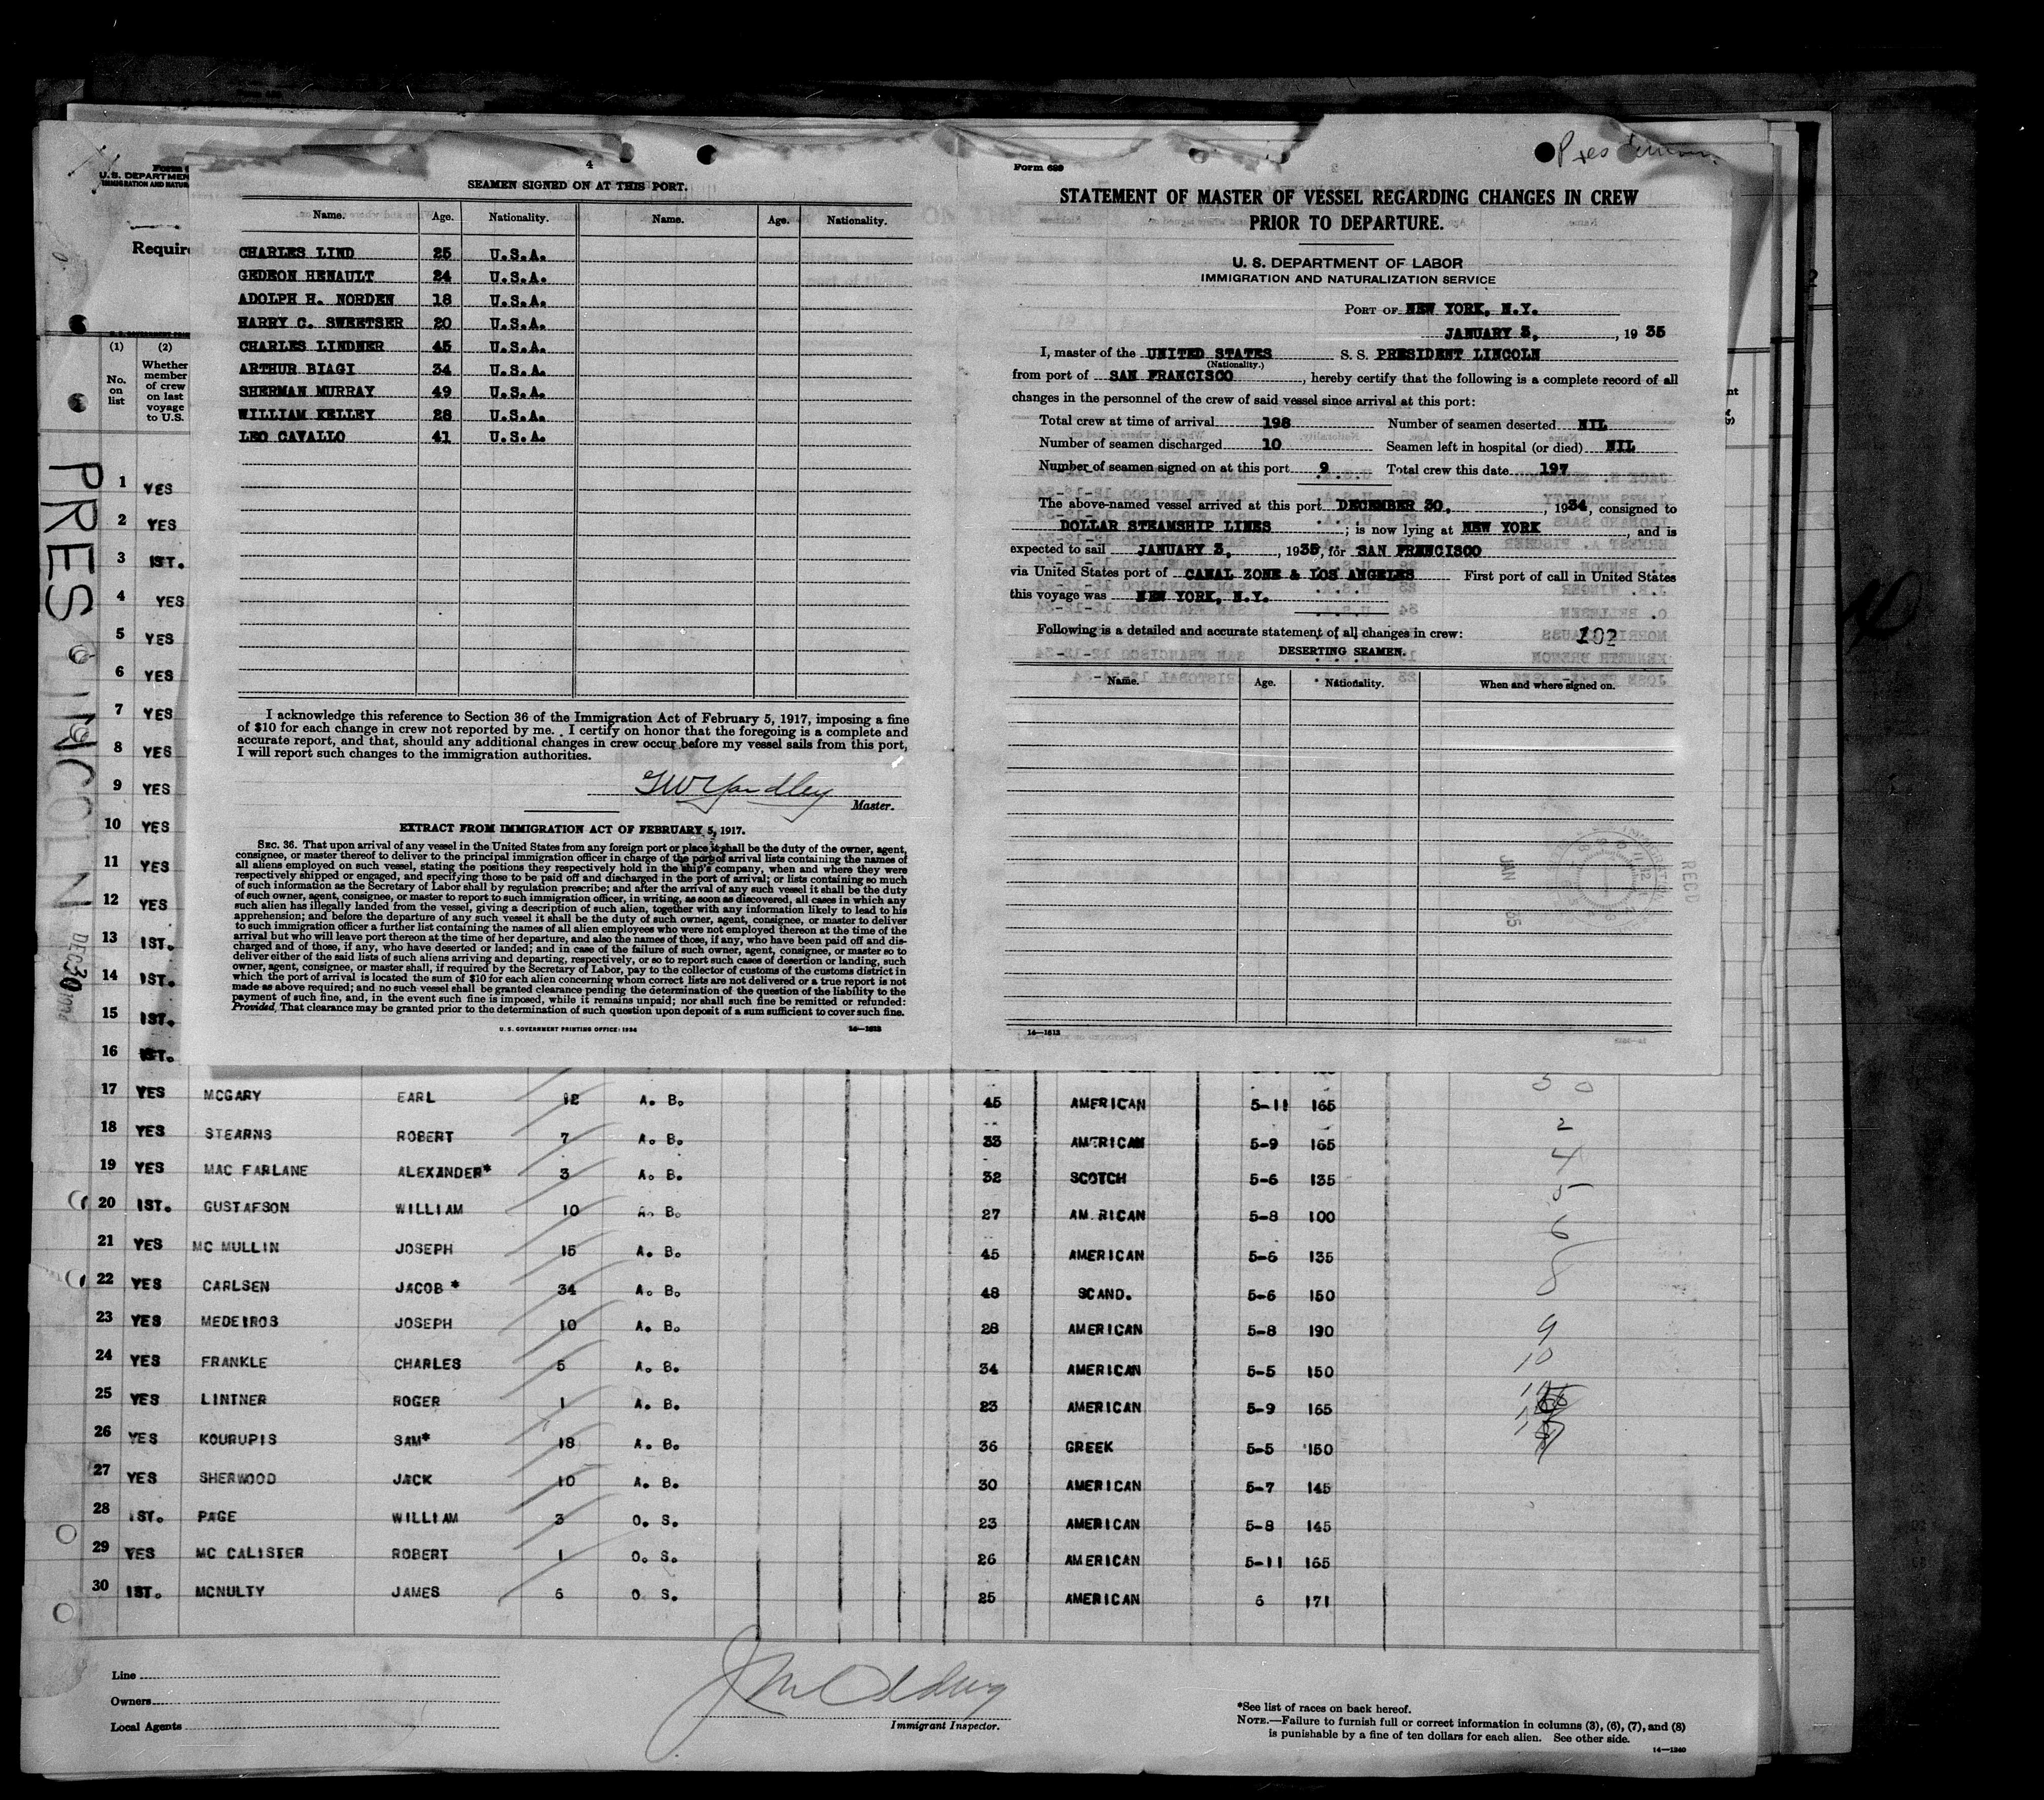 4
SEAMEN SIGNED ON AT THIS PORT.
Name. Age. Nationality. Name. Age. Nationality.
CHARLES LIND 25 U.S.A.
GEDEON HENAULT 24 U.S.A.
ADOLPH H. NORDEN 18 U.S.A.
HARRY C. SWEETSER 20 U.S.A.
CHARLES LINDNER 45 U.S.A.
ARTHUR BIAGI 34 U.S.A.
SHERMAN MURRAY 49 U.S.A.
WILLIAM KELLEY 28 U.S.A.
LEO CAVALLO 41 U.S.A.
I acknowledge this reference to Section 36 of the Immigration Act of February 5, 1917, imposing a fine
of $10 for each change in crew not reported by me. I certify on honor that the foregoing is a complete and
accurate report, and that, should any additional changes in crew occur before my vessel sails from this port,
I will report such changes to the immigration authorities.
Master.
EXTRACT FROM IMMIGRATION ACT OF FEBRUARY 5, 1917.
SEC. 36. That upon arrival of any vessel in the United States from any foreign port or place it shall be the duty of the owner, agent,
consignee, or master thereof to deliver to the principal immigration officer in charge of the port of arrival lists containing the names of
all aliens employed on such vessel, stating the positions they respectively hold in the ship's company, when and where they were
respectively shipped or engaged, and specifying those to be paid off and discharged in the port of arrival; or lists containing so much
of such information as the Secretary of Labor shall by regulation prescribe; and after the arrival of any such vessel it shall be the duty
of such owner, agent, consignee, or master to report to such immigration officer, in writing, as soon as discovered, all cases in which any
such alien has illegally landed from the vessel, giving a description of such alien, together with any information likely to lead to his
apprehension; and before the departure of any such vessel it shall be the duty of such owner, agent, consignee, or master to deliver
to such immigration officer a further list containing the names of all alien employees who were not employed thereon at the time of the
arrival but who will leave port thereon at the time of her departure, and also the names of those, if any, who have been paid off and dis-
charged and of those, if any, who have deserted or landed; and in case of the failure of such owner, agent, consignee, or master so to
deliver either of the said lists of such aliens arriving and departing, respectively, or so to report such cases of desertion or landing, such
owner, agent, consignee, or master shall, if required by the Secretary of Labor, pay to the collector of customs of the customs district in
which the port of arrival is located the sum of $10 for each alien concerning whom correct lists are not delivered or a true report is not
made as above required; and no such vessel shall be granted clearance pending the determination of the question of the liability to the
payment of such fine, and, in the event such fine is imposed, while it remains unpaid; nor shall such fine be remitted or refunded:
Provided, That clearance may be granted prior to the determination of such question upon deposit of a sum sufficient to cover such fine.
U. S. GOVERNMENT PRINTING OFFICE: 1934 14—1612
Form 689
STATEMENT OF MASTER OF VESSEL REGARDING CHANGES IN CREW
PRIOR TO DEPARTURE.
U. S. DEPARTMENT OF LABOR
IMMIGRATION AND NATURALIZATION SERVICE
PORT OF NEW YORK, N.Y.
JANUARY 3, , 1935
I, master of the UNITED STATES S. S. PRESIDENT LINCOLN
(Nationality.)
from port of SAN FRANCISCO, hereby certify that the following is a complete record of all
changes in the personnel of the crew of said vessel since arrival at this port:
Total crew at time of arrival 198 Number of seamen deserted NIL
Number of seamen discharged 10 Seamen left in hospital (or died) NIL
Number of seamen signed on at this port 9 Total crew this date 197
The above-named vessel arrived at this port DECEMBER 30, , 1934, consigned to
DOLLAR STEAMSHIP LINES ; is now lying at NEW YORK , and is
expected to sail JANUARY 3, , 1935, for SAN FRANCISCO
via United States port of CANAL ZONE & LOS ANGELES First port of call in United States
this voyage was NEW YORK, N.Y.
Following is a detailed and accurate statement of all changes in crew: 102
DESERTING SEAMEN.
Name. Age. Nationality. When and where signed on.
REC'D
JAN 35
14—1612
U. S. DEPARTMEN
IMMIGRATION AND NATURA
Require
(1) (2)
No. on list
Whether member of crew on last voyage to U.S.
PRES LINCOLN
DEC 30 1934
1 YES
2 YES
3 IST.
4 YES
5 YES
6 YES
7 YES
8 YES
9 YES
10 YES
11 YES
12 YES
13 IST.
14 IST.
15 IST.
16 IST.
17 YES MCGARY EARL 12 A. B. 45 AMERICAN 5-11 165
18 YES STEARNS ROBERT 7 A. B. 33 AMERICAN 5-9 165 2
19 YES MAC FARLANE ALEXANDER* 3 A. B. 32 SCOTCH 5-6 135 4
20 IST. GUSTAFSON WILLIAM 10 A. B. 27 AM.RICAN 5-8 100 5
21 YES MC MULLIN JOSEPH 15 A. B. 45 AMERICAN 5-6 135 6
22 YES CARLSEN JACOB * 34 A. B. 48 SCAND. 5-6 150 8
23 YES MEDEIROS JOSEPH 10 A. B. 28 AMERICAN 5-8 190 9
24 YES FRANKLE CHARLES 5 A. B. 34 AMERICAN 5-5 150 10
25 YES LINTNER ROGER 1 A. B. 23 AMERICAN 5-9 165
26 YES KOURUPIS SAM* 18 A. B. 36 GREEK 5-5 150
27 YES SHERWOOD JACK 10 A. B. 30 AMERICAN 5-7 145
28 IST. PAGE WILLIAM 3 O. S. 23 AMERICAN 5-8 145
29 YES MC CALISTER ROBERT 1 O. S. 26 AMERICAN 5-11 165
30 IST. MCNULTY JAMES 6 O S. 25 AMERICAN 6 171
Line
Owners
Local Agents
Immigrant Inspector.
*See list of races on back hereof.
NOTE.—Failure to furnish full or correct information in columns (3), (6), (7), and (8)
is punishable by a fine of ten dollars for each alien. See other side.
14—1240